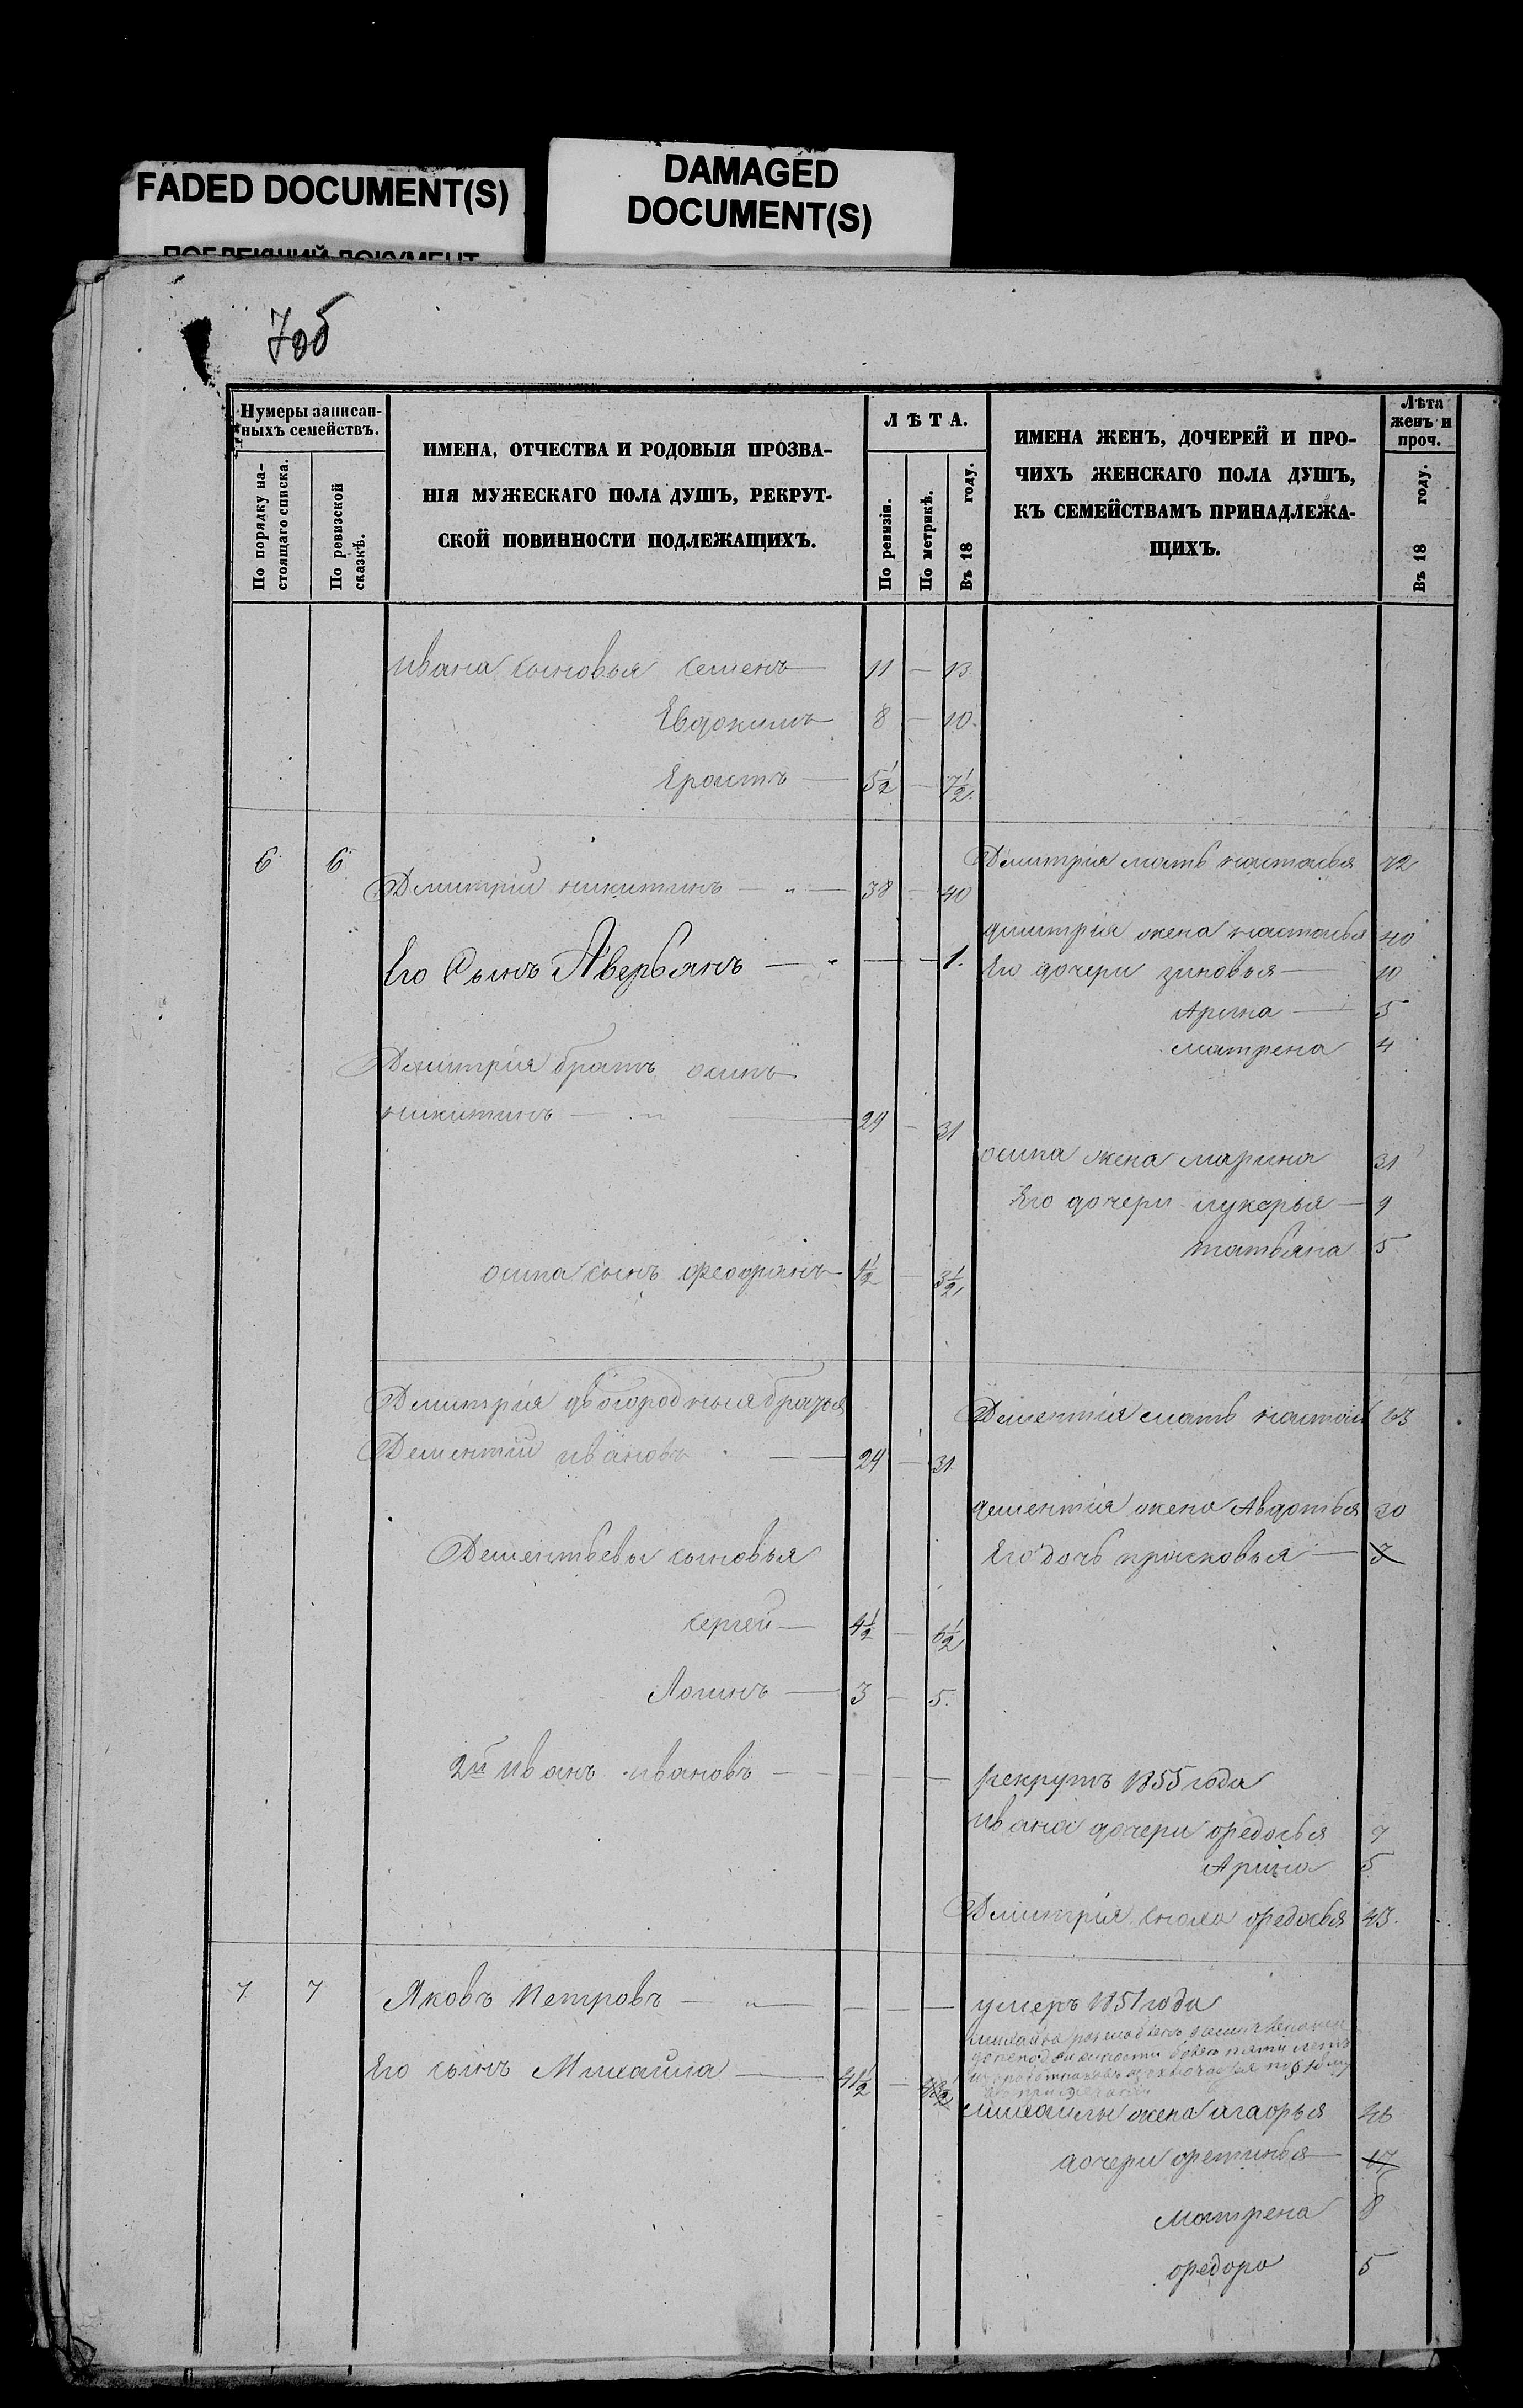 FADED DOCUMENT(S)
DAMAGED
DOCUMENT(S)
7об
Нумеры записан-
ныхъ семействъ.
По порядку на-
стоящаго списка.
По ревизской
сказкѣ.
ИМЕНА, ОТЧЕСТВА И РОДОВЫЯ ПРОЗВА-
НІЯ МУЖЕСКАГО ПОЛА ДУШЪ, РЕКРУТ-
СКОЙ ПОВИННОСТИ ПОДЛЕЖАЩИХЪ.
ЛѢТА.
По ревизіи.
По метрикѣ.
Въ 18 году.
ИМЕНА ЖЕНЪ, ДОЧЕРЕЙ И ПРО-
ЧИХЪ ЖЕНСКАГО ПОЛА ДУШЪ,
КЪ СЕМЕЙСТВАМЪ ПРИНАДЛЕЖА-
ЩИХЪ.
Лѣта
женъ и
проч.
Въ 18 году.
Ивана сыновья Семенъ — 11 — 13
Евдокимъ — 8 — 10.
Ерастъ — 5½ — 7½.
6 6 Дмитрій никитинъ — „ — 38 — 40
Дмитрія мать настасья 72
дмитрія жена настасья 40
Его Сынъ Аверьянъ — „ — — 1.
Его дочери зиновья — 10
Арина — 5
матрена 4
Дмитрія братъ осипъ
никитинъ — „ — 29 — 31
осипа жена марина 31
Его дочери лукерья — 9
татьяна 5
осипа сынъ 1½ — 3½
Дмитрія двоюродныя братья
Дементій ивановъ — 29 — 31
Дементія мать 63
дементія жена Авдотья 30
Дементьевы сыновья
Его дочь прасковья — 3
сергей — 4½ — 6½
Логинъ — 3 — 5.
2й Иванъ ивановъ — — — —
рекрутъ 1855 года
Ивана дочери федосья 9
Арина 5
Дмитрія сноха федосья 43.
7 7 Яковъ Петровъ — „ — — — —
умеръ 1851 года
Его сынъ Михаила — 41½ — 43½
михаилы жена агафья 46
дочери фетинья — 17
Матрена 8
федора 5